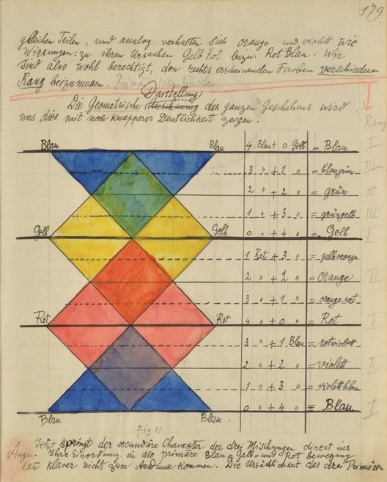 179
gleichen Teilen, und analog verhalten sich orange und violett wie
Wirkungen: zu ihren Ursachen Gelb Rot bezw. Rot Blau. Wir
sind also wohl berechtigt, den Farben verschiedenen
Rang beizumessen.
Darstellung
Die Geometrische des ganzen Geschehens wird
uns dies mit knapperer Deutlichkeit zeigen.
Rang
Blau Blau 4 Blau + 0 Gelb = Blau I
3 " + 1 " = blaugrün III
2 " + 2 " = grün II
1 " + 3 " = grüngelb III
Gelb Gelb 0 " + 4 " = Gelb I
1 Rot + 3 " = gelborange
2 " + 2 " = Orange II
3 " + 1 " = orangerot
Rot Rot 4 " + 0 " = Rot I
3 " + 1 Blau = rotviolett
2 " + 2 " = violett II
1 " + 3 " = violettblau
Blau Blau 0 " + 4 " = Blau I
Fig 11
Jetzt springt der secundäre Charakter der drei Mischungen direct ins
Auge. Ihre Einordnung in die primäre Blau Gelb und Rot bewegung
klarer nicht zum kommen. Die Ursächlichkeit des drei Primären